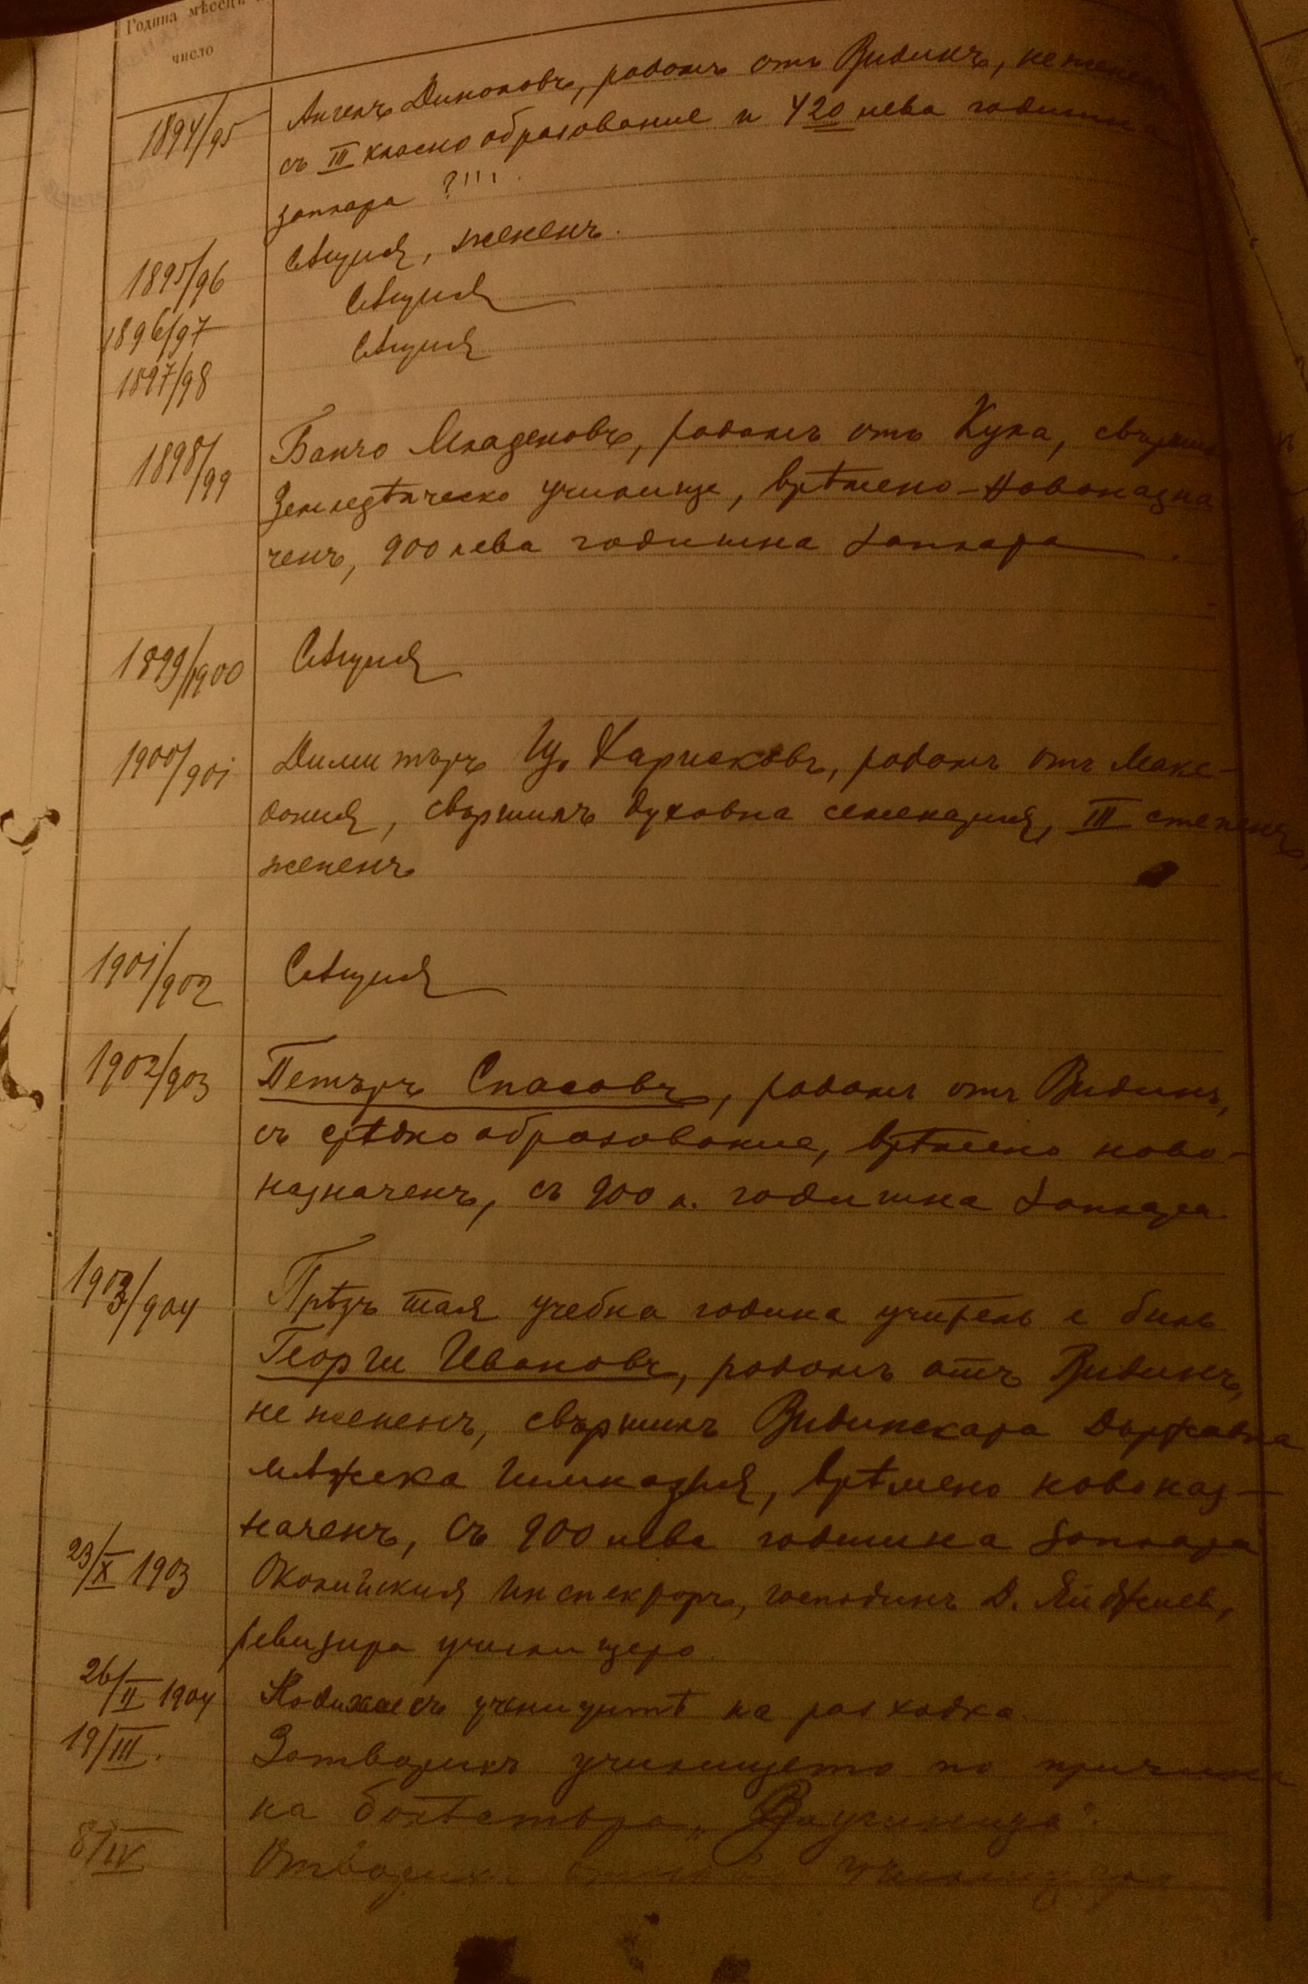 Година мѣсецъ и
число
1894/95 Ангелъ Динковъ, родомъ отъ Видинъ, неженен
съ III класно образование и 420 лева годишна
заплата ?!!!
1895/96 Сѫщия, жененъ.
1896/97 Сѫщия
1897/98 Сѫщия
1898/99 Банчо Младеновъ, родомъ отъ Кула, свърши
Земледѣлческо училище, врѣмено-новоназна
ченъ, 900 лева годишна заплата.
1899/1900 Сѫщия
1900/901 Димитъръ Ц. родомъ отъ Маке-
дония, свършилъ духовна семенария, III степень,
жененъ
1901/902 Сѫщия
1902/903 Петъръ Спасовъ, родомъ отъ Видинъ,
съ срѣдно образование, врѣмено ново-
назначенъ, съ 900 л. годишна заплата.
1903/904 Прѣзъ тая учебна година учитель е билъ
Георги Ивановъ, родомъ отъ Видинъ,
неженень, свършилъ Видинската Държавна
мѫжска гимназия, врѣмено новоназ-
наченъ, съ 900 лева годишна заплата
23/X 1903 Околийския инспекторъ, господинъ Д.
ревизира училището
26/II 1904 съ ученицитѣ на расходка.
19/III. Затворихъ училището по причина
на болѣстьта
8/IV Отворихъ